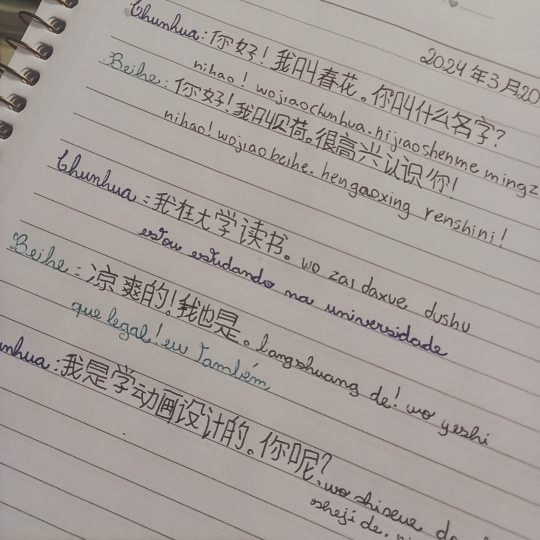 2024年3月20
Chunhua: 你好！我叫春花。你叫什么名字？
nihao! wojiaochunhua. nijiaoshenme mingz
Beihe: 你好！我叫贝荷。很高兴认识你！
nihao! wojiaobeihe. hengaoxing renshini!
Chunhua: 我在大学读书。wo zai daxue dushu
estou estudando na universidade
Beihe: 凉爽的！我也是。langshuang de! wo yeshi
que legal! eu também
unhua: 我是学动画设计的。你呢？wo shixue do
sheji de. ni